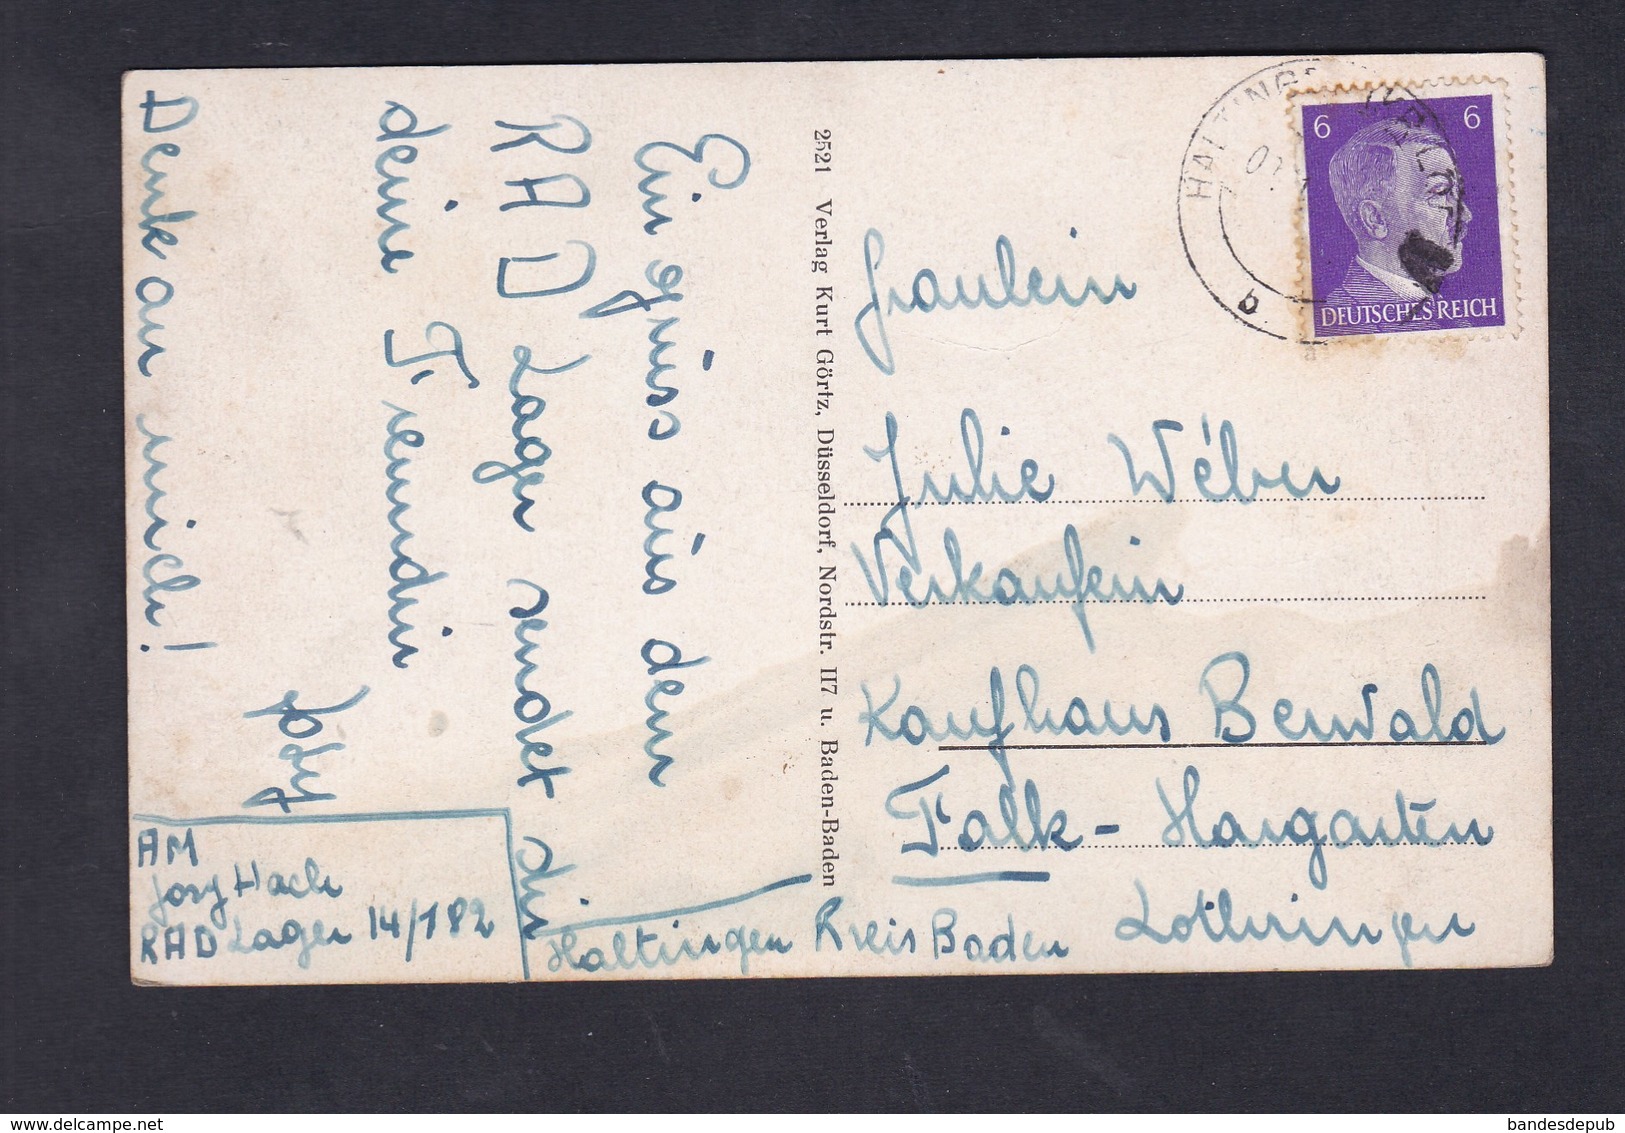 Ein gruss aus dem
RAD Lager sendet dir
deine Freundin
Josy
Denk an mich!
AM
Josy Hach
RAD Lager 14/182
Haltingen Kreis Baden
2521 Verlag Kurt Görtz, Düsseldorf, Nordstr. 117 u. Baden-Baden
HALTINGEN
6 6
DEUTSCHES REICH
Fraulein
Julie Wéber
Verkauferin
Kaufhaus Berwald
Falk-Hargarten
Lothringen
delcampe.net
bandesdepub